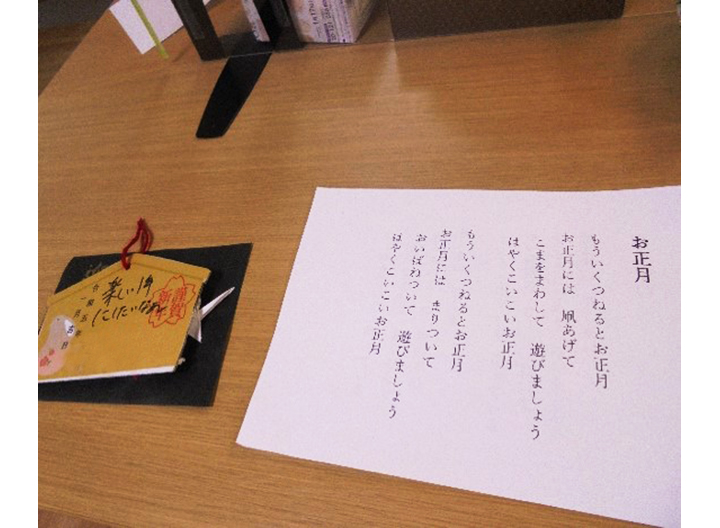 お正月
もういくつねるとお正月
お正月には 凧あげて
こまをまわして 遊びましょう
はやくこいこいお正月
もういくつねるとお正月
お正月には まりついて
おいばねついて 遊びましょう
はやくこいこいお正月
謹賀
新年
楽しい1年
にしたいなぁ